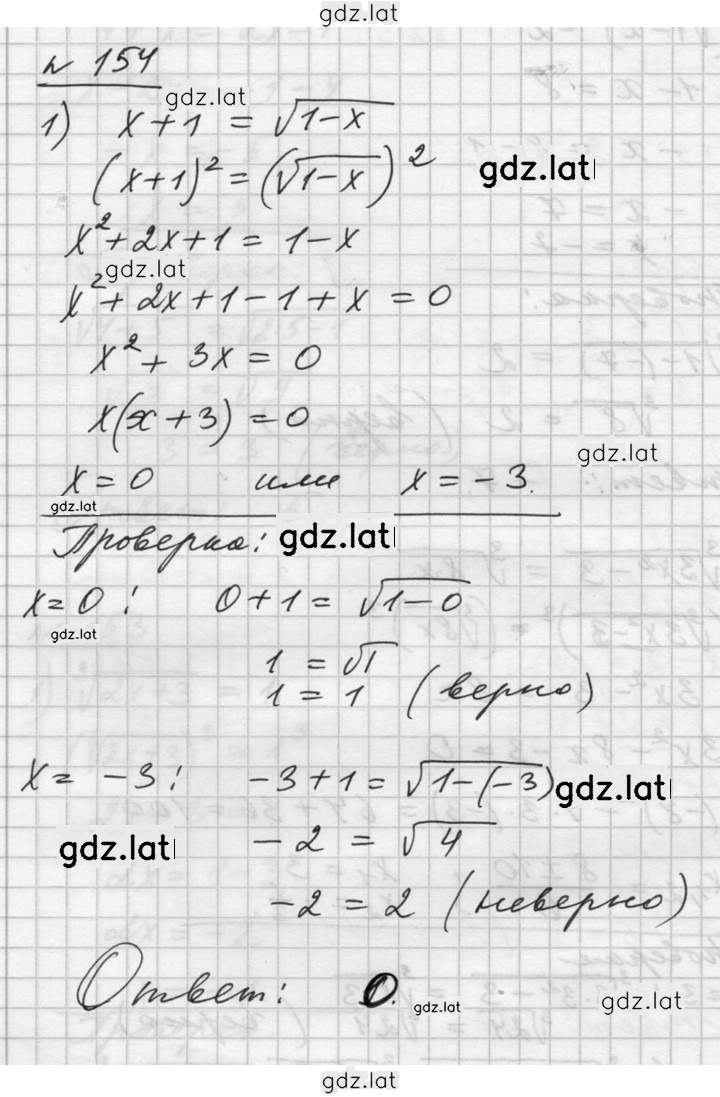 gdz.lat
№ 154
gdz.lat
1) x+1 = √(1-x)
(x+1)² = (√(1-x))² gdz.lat
x²+2x+1 = 1-x
gdz.lat
x²+2x+1-1+x = 0
x²+3x = 0
x(x+3) = 0
gdz.lat
x=0 или x=-3.
gdz.lat
Проверка: gdz.lat
x=0: 0+1 = √(1-0)
gdz.lat
1 = √1
1 = 1 (верно)
x=-3: -3+1 = √(1-(-3)) gdz.lat
gdz.lat -2 = √4
-2 = 2 (неверно)
Ответ: 0. gdz.lat gdz.lat
gdz.lat